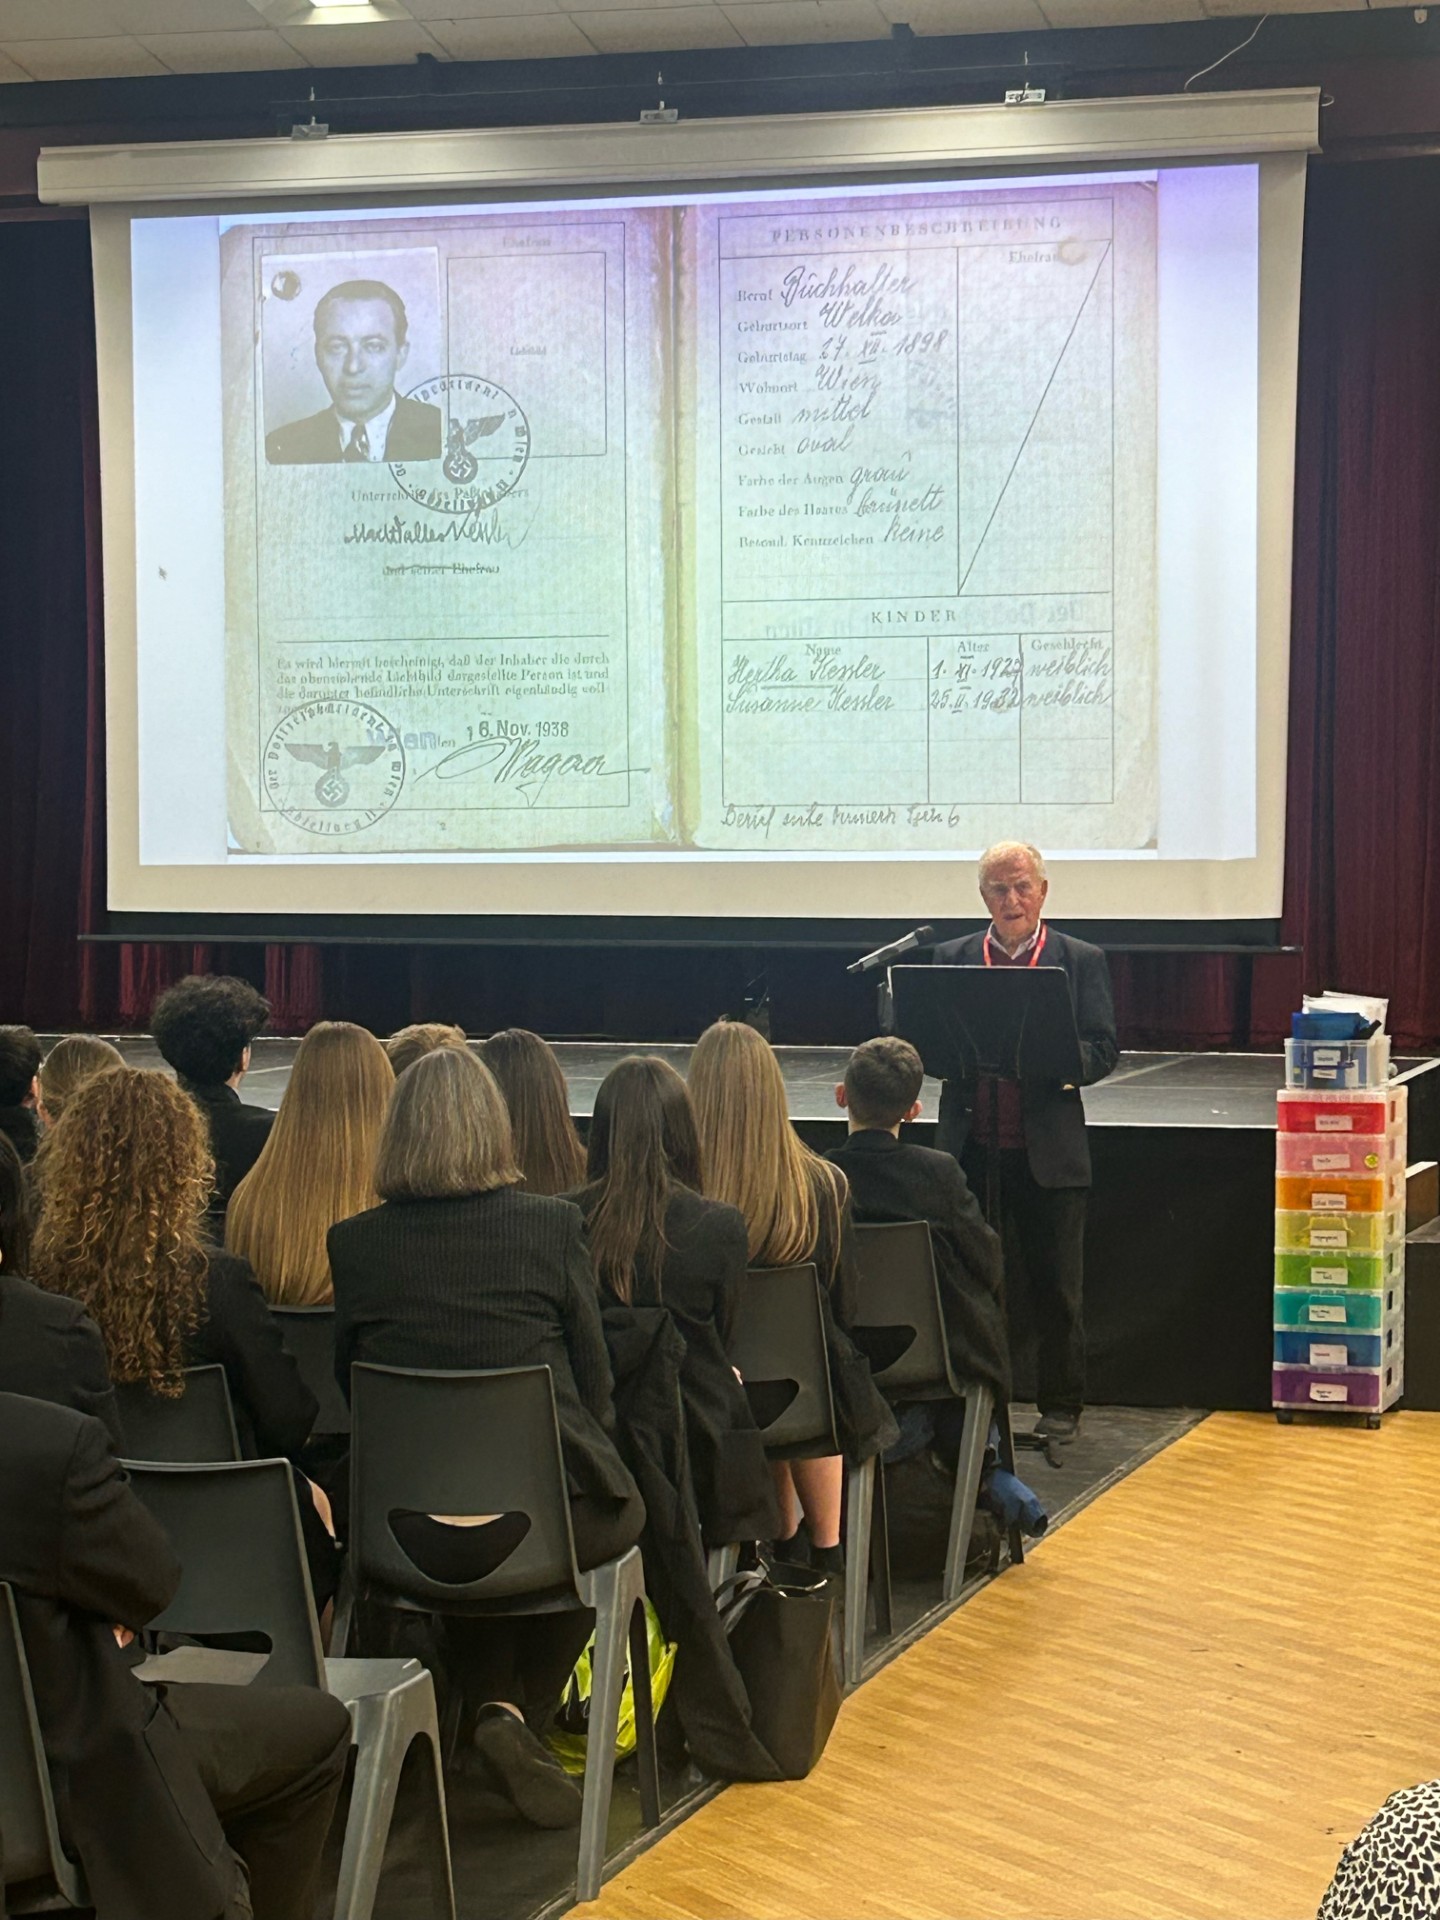 Ehefrau
Lichtbild
Unterschrift des Paßinhabers
und seiner Ehefrau
Es wird hiermit bescheinigt, daß der Inhaber die durch
das obenstehende Lichtbild dargestellte Person ist und
die darunter befindliche Unterschrift eigenhändig voll-
Wien
16. Nov. 1938
Wagner
Der Polizeipräsident in Wien
Abteilung II
2
PERSONENBESCHREIBUNG
Ehefrau
Beruf Buchhalter
Geburtsort Welka
Geburtstag 27. XII. 1898
Wohnort Wien
Gestalt mittel
Gesicht oval
Farbe der Augen grau
Farbe des Haares brünett
Besond. Kennzeichen Keine
KINDER
Name Alter Geschlecht
Hertha Kessler 1. XI. weiblich
Susanne Kessler 25. II. 1932 weiblich
Beruf siehe 6